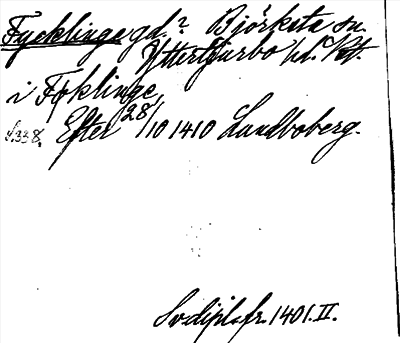 Fycklinge gd.? Björksta sn.
Yttertjurbo hd. Vst.
i Fyklinge
s.338. Efter 28/10 1410 Lundboberg.
Sv. dipl. fr. 1401. II.